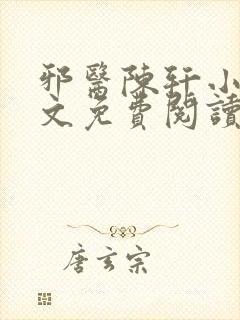 邪醫陳軒小
文免費閱讀
唐玄宗